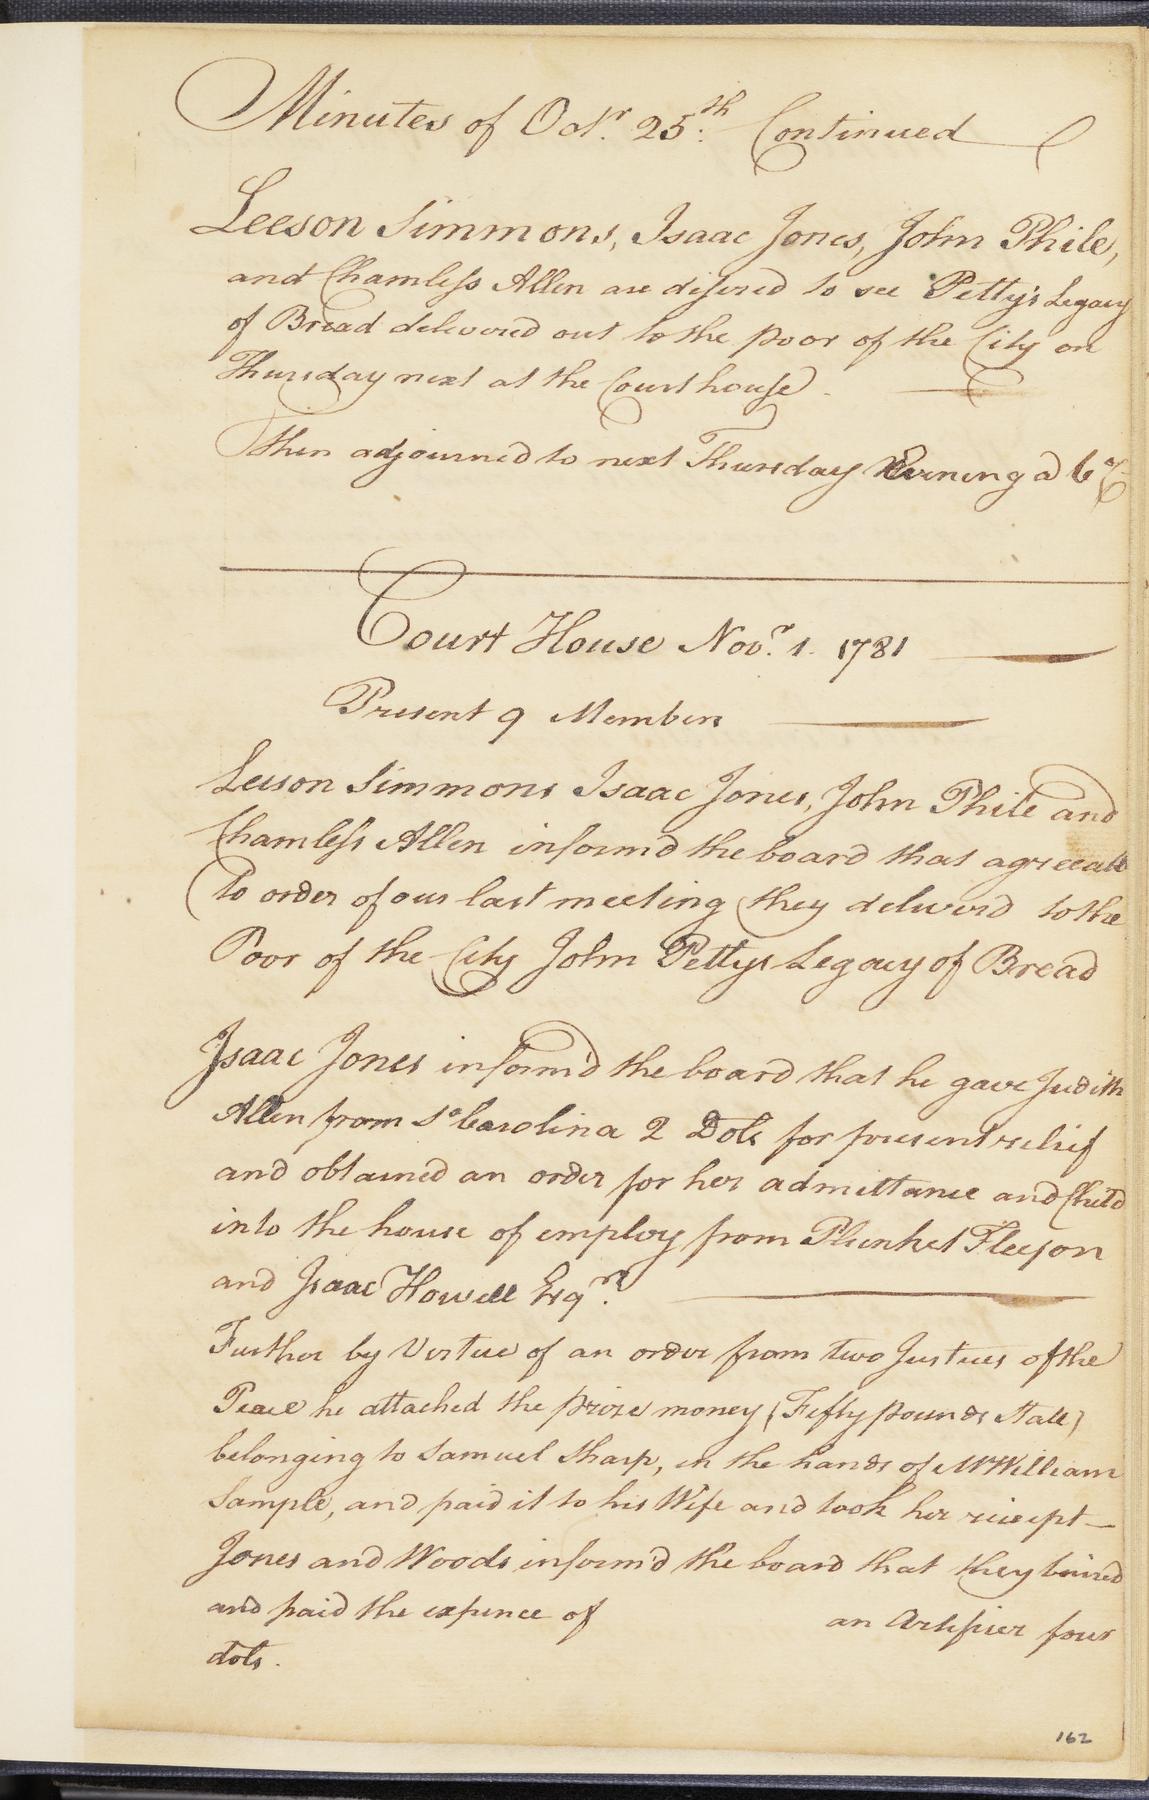 Minutes of Octr. 25th: Continued
Leeson Simmons, Isaac Jones, John Phile,
and Chamless Allen are desired to see Petty's Legacy
of Bread delivered out to the poor of the City on
Thursday next at the Court house.
Then adjourned to next Thursday Evening @ 6
Court House Novr. 1. 1781
Present 9 Members
Leeson Simmons Isaac Jones, John Phile and
Chamless Allen inform'd the board that agreeable
to order of our last meeting they deliverd to the
Poor of the City John Pettys Legacy of Bread
Isaac Jones inform'd the board that he gave Judith
Allen from So Carolina 2 Dols for present relief
and obtained an order for her admittance and Child
into the house of employ from Plunket Fleeson
and Isaac Howell Esqrs.
Further by Vertue of an order from two Justices of the
Peace he attached the prize money (Fifty pounds State)
belonging to Samuel Sharp, in the hands of Mr William
Sample, and paid it to his Wife and took her receipt—
Jones and Woods inform'd the board that they buried
and paid the expence of an Artifier four
dols.
162